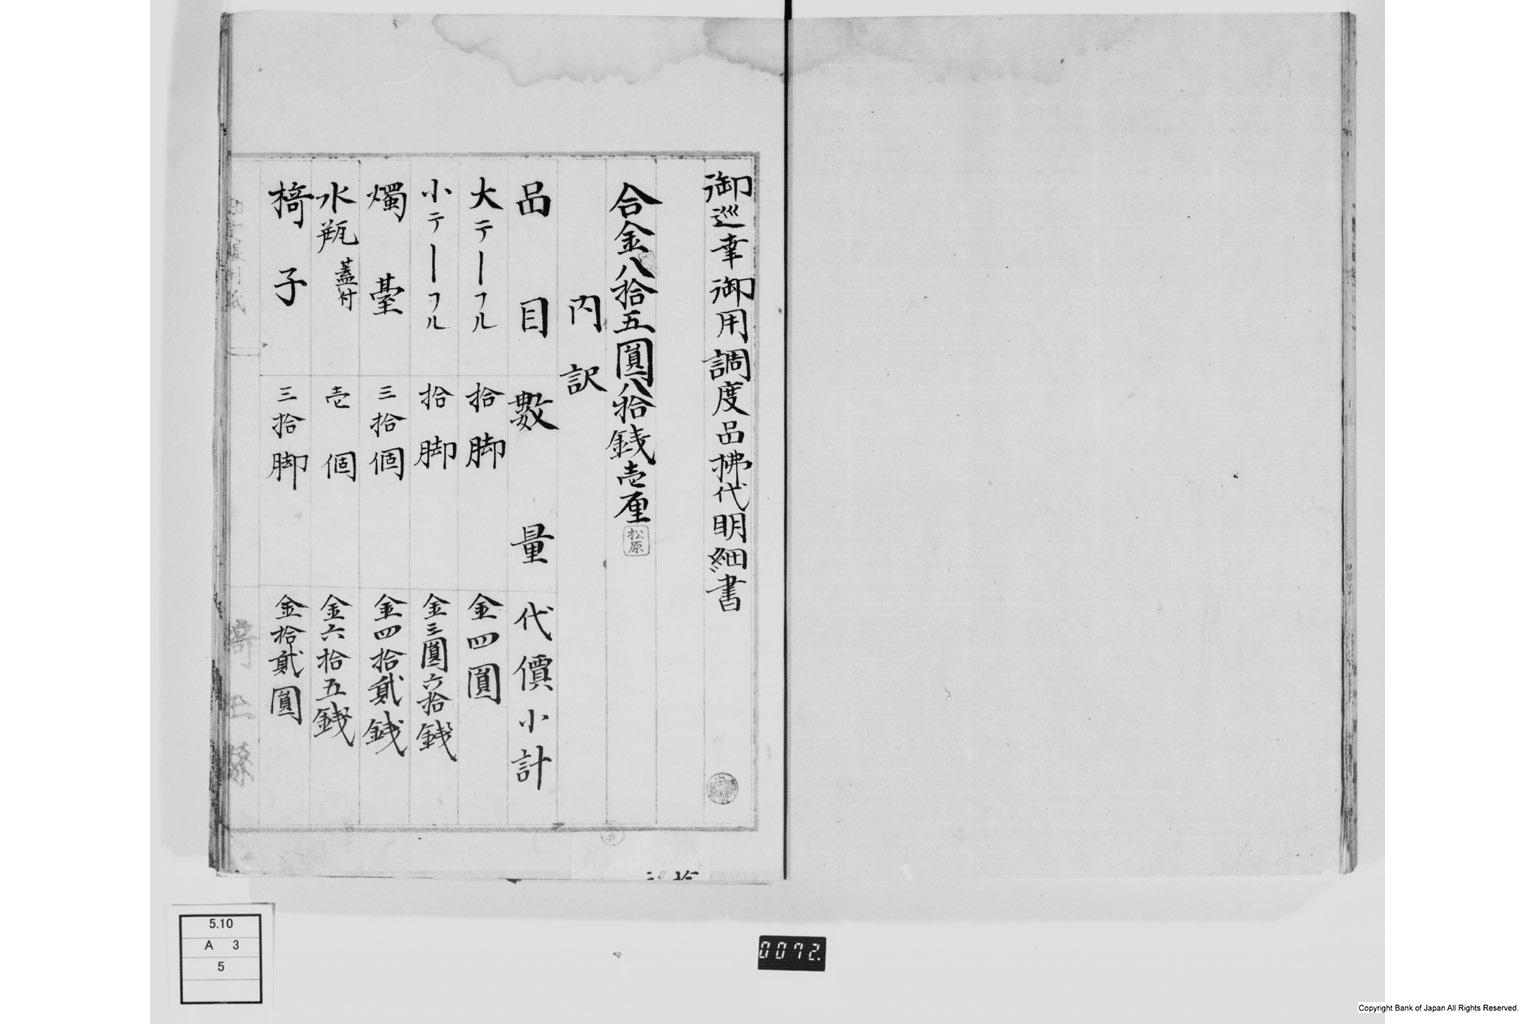 御巡幸御用調度品拂代明細書
合金八拾五圓八拾銭壱厘
松原
内訳
品目 數量 代價小計
大テーフル 拾脚 金四圓
小テーフル 拾脚 金三圓六拾銭
燭臺 三拾個 金四拾貮銭
水瓶 蓋付 壱個 金六拾五銭
椅子 三拾脚 金拾貮圓
5.10
A 3
5
0072.
Copyright Bank of Japan All Rights Reserved.